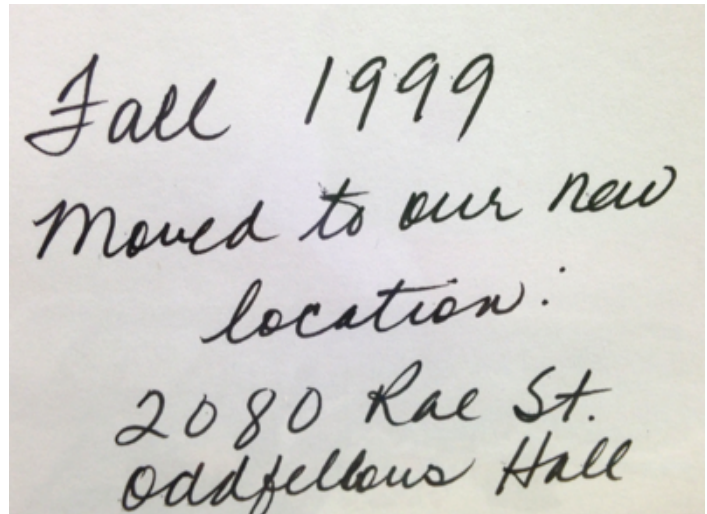 Fall 1999
Moved to our new
location:
2080 Rae St.
Oddfellows Hall